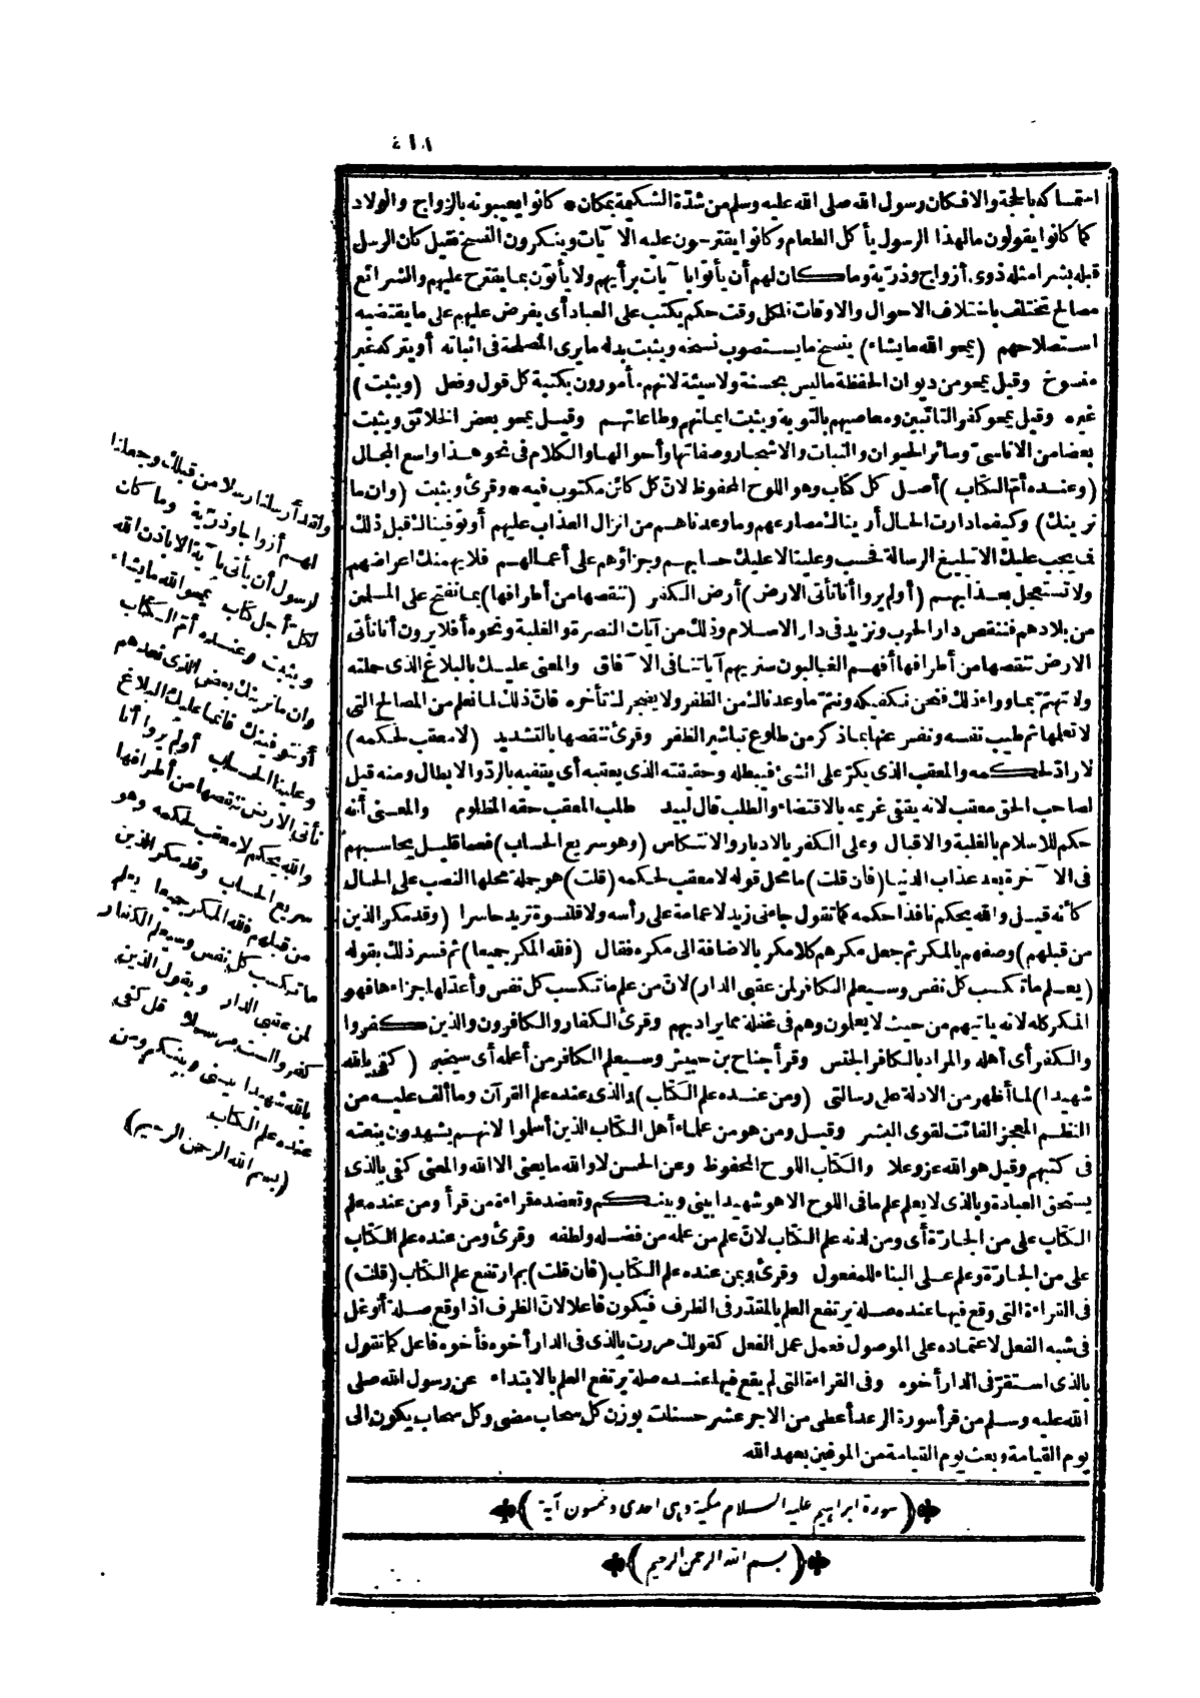 استمساكه بالحجة والافكان رسول الله صلى الله عليه وسلم من شدّة الشكيمة بمكان * كانوا يعيبونه بالزواج والولاد
كما كانوا يقولون مالهذا الرسول يأكل الطعام وكانوا يقترحون عليه الآيات وينكرون النسخ فقيل كان الرسل
قبله بشرا مثله ذوى أزواج وذرّية وما كان لهم أن يأتوا بآيات برأيهم ولا يأتون بما يقترح عليهم والشرائع
مصالح تختلف باختلاف الاحوال والاوقات فلكل وقت حكم يكتب على العباد أى يفرض عليهم على ما يقتضيه
استصلاحهم (يمحو الله ما يشاء) ينسخ ما يستصوب نسخه ويثبت بدله ما يرى المصلحة فى اثباته أو يتركه غير
منسوخ وقيل يمحو من ديوان الحفظة ما ليس بحسنة ولا سيئة لانهم مأمورون بكتبة كل قول وفعل (ويثبت)
غيره وقيل يمحو كفر التائبين ومعاصيهم بالتوبة ويثبت ايمانهم وطاعاتهم وقيل يمحو بعض الخلائق ويثبت
بعضا من الاناسىّ وسائر الحيوان والنبات والاشجار وصفاتها وأحوالها والكلام فى نحو هذا واسع المجال
(وعنده أمّ الكتاب) أصل كل كتاب وهو اللوح المحفوظ لانّ كل كائن مكتوب فيه * وقرئ ويثبت (وان ما
نرينك) وكيفما دارت الحال أريناك مصارعهم وما وعدناهم من انزال العذاب عليهم أو توفيناك قبل ذلك
فما يجب عليك الا تبليغ الرسالة فحسب وعلينا لا عليك حسابهم وجزاؤهم على أعمالهم فلا يهمنك اعراضهم
ولا تستعجل بعذابهم (أولم يروا أنا نأتى الارض) أرض الكفر (ننقصها من أطرافها) بما نفتح على المسلمين
من بلادهم فننقص دار الحرب ونزيد فى دار الاسلام وذلك من آيات النصرة والغلبة ونحوه أفلا يرون أنا نأتى
الارض ننقصها من أطرافها أفهم الغالبون سنريهم آياتنا فى الآفاق والمعنى عليك بالبلاغ الذى حملته
ولا تهتمّ بما وراء ذلك فنحن نكفيكه ونتمّ ما وعدناك من الظفر ولا يضجرك تأخره فانّ ذلك لما نعلم من المصالح التى
لا تعلمها ثم طيب نفسه ونفس عنها بما ذكر من طلوع تباشير الظفر وقرئ ننقصها بالتشديد (لا معقب لحكمه)
لا رادّ لحكمه والمعقب الذى يكرّ على الشئ فيبطله وحقيقته الذى يعقبه أى يقفيه بالردّ والابطال ومنه قيل
لصاحب الحق معقب لانه يقفى غريمه بالاقتضاء والطلب قال لبيد طلب المعقب حقه المظلوم والمعنى أنه
حكم للاسلام بالغلبة والاقبال وعلى الكفر بالادبار والانتكاس (وهو سريع الحساب) فعما قليل يحاسبهم
فى الآخرة بعد عذاب الدنيا (فان قلت) ما محل قوله لا معقب لحكمه (قلت) هو جملة محلها النصب على الحال
كأنه قيل والله يحكم نافذا حكمه كما تقول جاءنى زيد لا عمامة على رأسه ولا قلنسوة تريد حاسرا (وقد مكر الذين
من قبلهم) وصفهم بالمكر ثم جعل مكرهم كلا مكر بالاضافة الى مكره فقال (فلله المكر جميعا) ثم فسر ذلك بقوله
(يعلم ما تكسب كل نفس وسيعلم الكافر لمن عقبى الدار) لانّ من علم ما تكسب كل نفس وأعدّ لها جزاءها فهو
المكر كله لانه يأتيهم من حيث لا يعلمون وهم فى غفلة مما يراد بهم وقرئ الكفار والكافرون والذين كفروا
والكفر أى أهله والمراد بالكافر الجنس وقرأ جناح بن حبيش وسيعلم الكافر من أعلمه أى سيخبر (كفى بالله
شهيدا) لما أظهر من الادلة على رسالتى (ومن عنده علم الكتاب) والذى عنده علم القرآن وما ألف عليه من
النظم المعجز الفائت لقوى البشر وقيل ومن هو من علماء أهل الكتاب الذين أسلموا لانهم يشهدون بنعته
فى كتبهم وقيل هو الله عز وعلا والكتاب اللوح المحفوظ وعن الحسن لا والله ما يعنى الا الله والمعنى كفى بالذى
يستحق العبادة وبالذى لا يعلم علم ما فى اللوح الا هو شهيدا بينى وبينكم وتعضده قراءة من قرأ ومن عنده علم
الكتاب على من الجارّة أى ومن لدنه علم الكتاب لانّ علم من علمه من فضله ولطفه وقرئ ومن عنده علم الكتاب
على من الجارّة وعلم على البناء للمفعول وقرئ وبمن عنده علم الكتاب (فان قلت) بم ارتفع علم الكتاب (قلت)
فى القراءة التى وقع فيها عنده صلة يرتفع العلم بالمقدّر فى الظرف فيكون فاعلا لانّ الظرف اذا وقع صلة أوغل
فى شبه الفعل لاعتماده على الموصول فعمل عمل الفعل كقولك مررت بالذى فى الدار أخوه فأخوه فاعل كما تقول
بالذى استقرّ فى الدار أخوه وفى القراءة التى لم يقع فيها عنده صلة يرتفع العلم بالابتداء عن رسول الله صلى
الله عليه وسلم من قرأ سورة الرعد أعطى من الاجر عشر حسنات بوزن كل سحاب مضى وكل سحاب يكون الى
يوم القيامة وبعث يوم القيامة من الموفين بعهد الله
(سورة ابراهيم عليه السلام مكية وهى احدى وخمسون آية)
(بسم الله الرحمن الرحيم)
ولقد أرسلنا رسلا من قبلك وجعلنا
لهم أزواجا وذرّية وما كان
لرسول أن يأتى بآية الا باذن الله
لكل أجل كتاب يمحو الله ما يشاء
ويثبت وعنده أمّ الكتاب
وان ما نرينك بعض الذى نعدهم
أو نتوفينك فانما عليك البلاغ
وعلينا الحساب أولم يروا أنا
نأتى الارض ننقصها من أطرافها
والله يحكم لا معقب لحكمه وهو
سريع الحساب وقد مكر الذين
من قبلهم فلله المكر جميعا يعلم
ما تكسب كل نفس وسيعلم الكفار
لمن عقبى الدار ويقول الذين
كفروا لست مرسلا قل كفى
بالله شهيدا بينى وبينكم ومن
عنده علم الكتاب
(بسم الله الرحمن الرحيم)